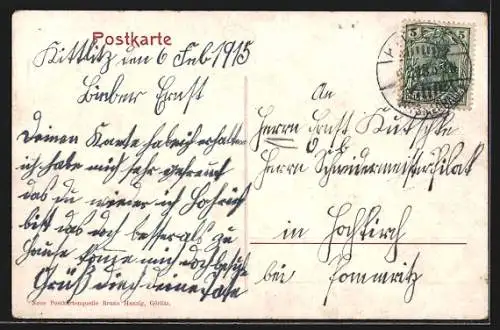 Postkarte
Kittlitz den 6 Feb 1915
Lieber Ernst
Deinen Karte hab ich erhalten
ich habe mich sehr gefreut
das du wieder ich
bist das doch besser als zu
Hause komme mich doch
Grüß dich deine
5 5
An
Herrn Ernst Kutschke
Herrn Schneidermeister
in Hochkirch
bei Pommritz
Neue Postkartenquelle Bruno Hanzig, Görlitz.